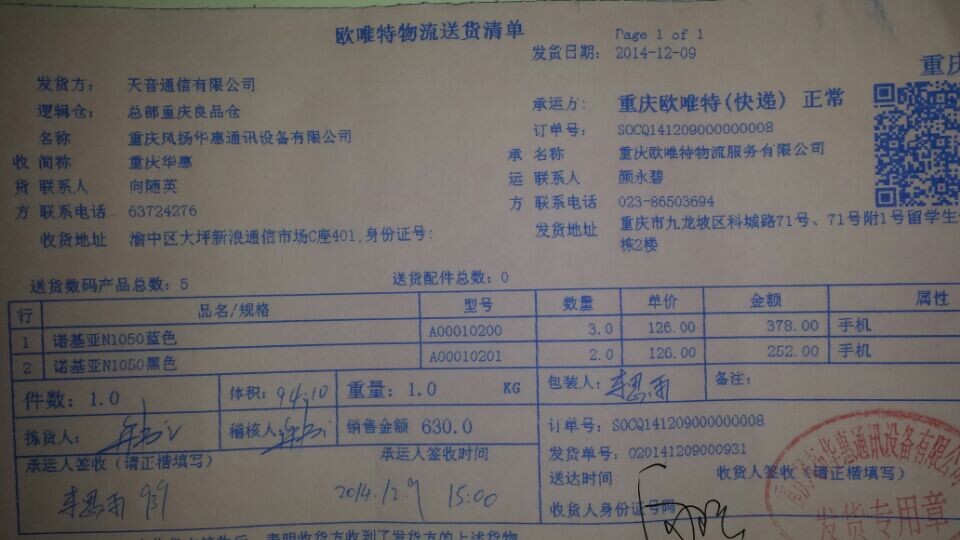 欧唯特物流送货清单
Page 1 of 1
发货日期: 2014-12-09
重庆
发货方: 天音通信有限公司
逻辑仓: 总部重庆良品仓
承运方: 重庆欧唯特(快递) 正常
名称 重庆风扬华惠通讯设备有限公司
订单号: SOCQ141209000000008
收 简称 重庆华惠
承 名称 重庆欧唯特物流服务有限公司
货 联系人 向随英
运 联系人 颜永碧
方 联系电话 63724276
方 联系电话 023-86503694
收货地址 渝中区大坪新浪通信市场C座401,身份证号:
发货地址 重庆市九龙坡区科城路71号、71号附1号留学生
栋2楼
送货数码产品总数: 5 送货配件总数: 0
行 品名/规格 型号 数量 单价 金额 属性
1 诺基亚N1050蓝色 A00010200 3.0 126.00 378.00 手机
2 诺基亚N1050黑色 A00010201 2.0 126.00 252.00 手机
件数: 1.0 体积: 94.10 重量: 1.0 KG 包装人: 李思雨 备注:
拣货人: 稽核人: 销售金额 630.0 订单号: SOCQ141209000000008
发货单号: 020141209000931
承运人签收 (请正楷填写) 承运人签收时间 送达时间 收货人签收 (请正楷填写)
李思雨 939 2014.12.9 15:00 收货人身份证号码
华惠通讯设备有限公司
发货专用章
表明收货方收到了发货方的上述货物